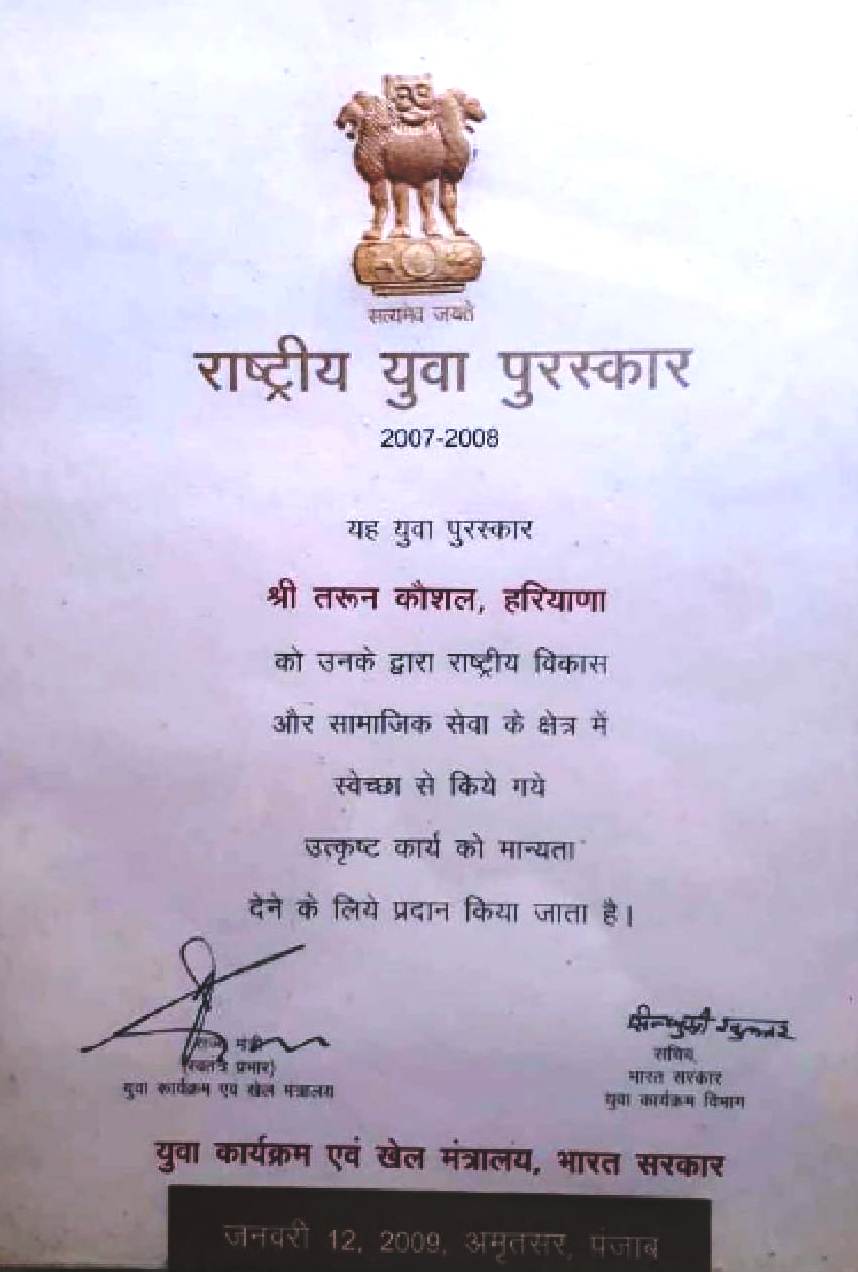 सत्यमेव जयते
राष्ट्रीय युवा पुरस्कार
2007-2008
यह युवा पुरस्कार
श्री तरून कौशल, हरियाणा
को उनके द्वारा राष्ट्रीय विकास
और सामाजिक सेवा के क्षेत्र में
स्वेच्छा से किये गये
उत्कृष्ट कार्य को मान्यता
देने के लिये प्रदान किया जाता है।
राज्य मंत्री
(स्वतंत्र प्रभार)
युवा कार्यक्रम एवं खेल मंत्रालय
सचिव,
भारत सरकार
युवा कार्यक्रम विभाग
युवा कार्यक्रम एवं खेल मंत्रालय, भारत सरकार
जनवरी 12, 2009, अमृतसर, पंजाब